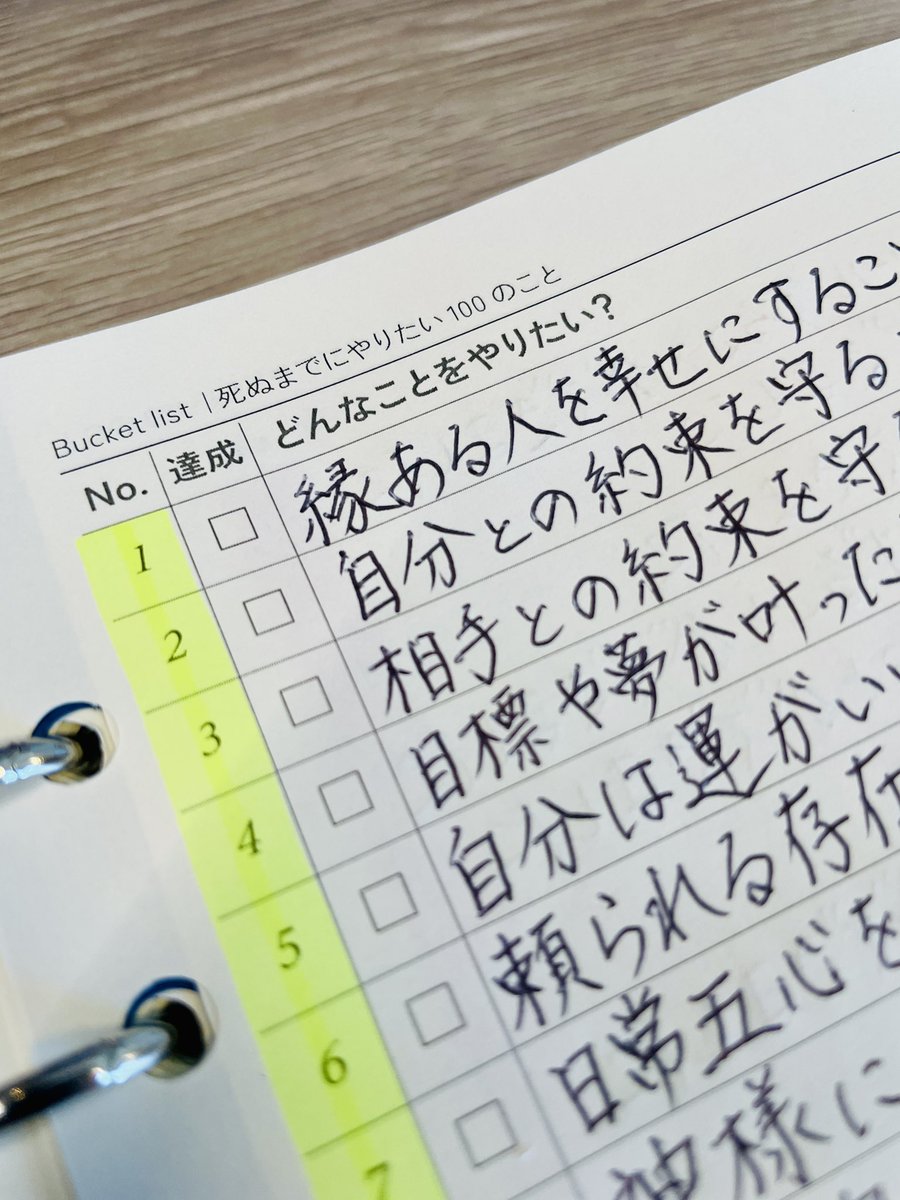 Bucket list | 死ぬまでにやりたい100のこと
No. 達成 どんなことをやりたい?
1 縁ある人を幸せにするこ
2 自分との約束を守る
3 相手との約束を守
4 目標や夢が叶った
5 自分は運がい
6 頼られる存在
7 日常五心を
神様に